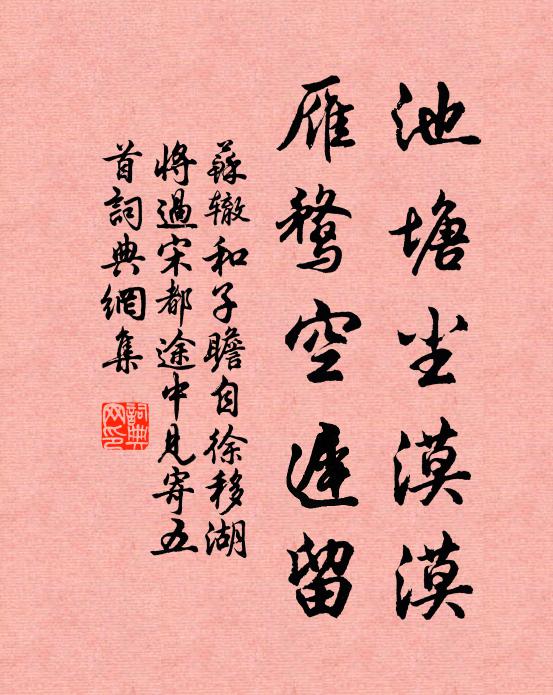 池塘尘漠漠
雁鹜空遲留
蘇辙和子瞻自徐移湖
將過宋都途中見寄五
首詞典網集
詞典
网印